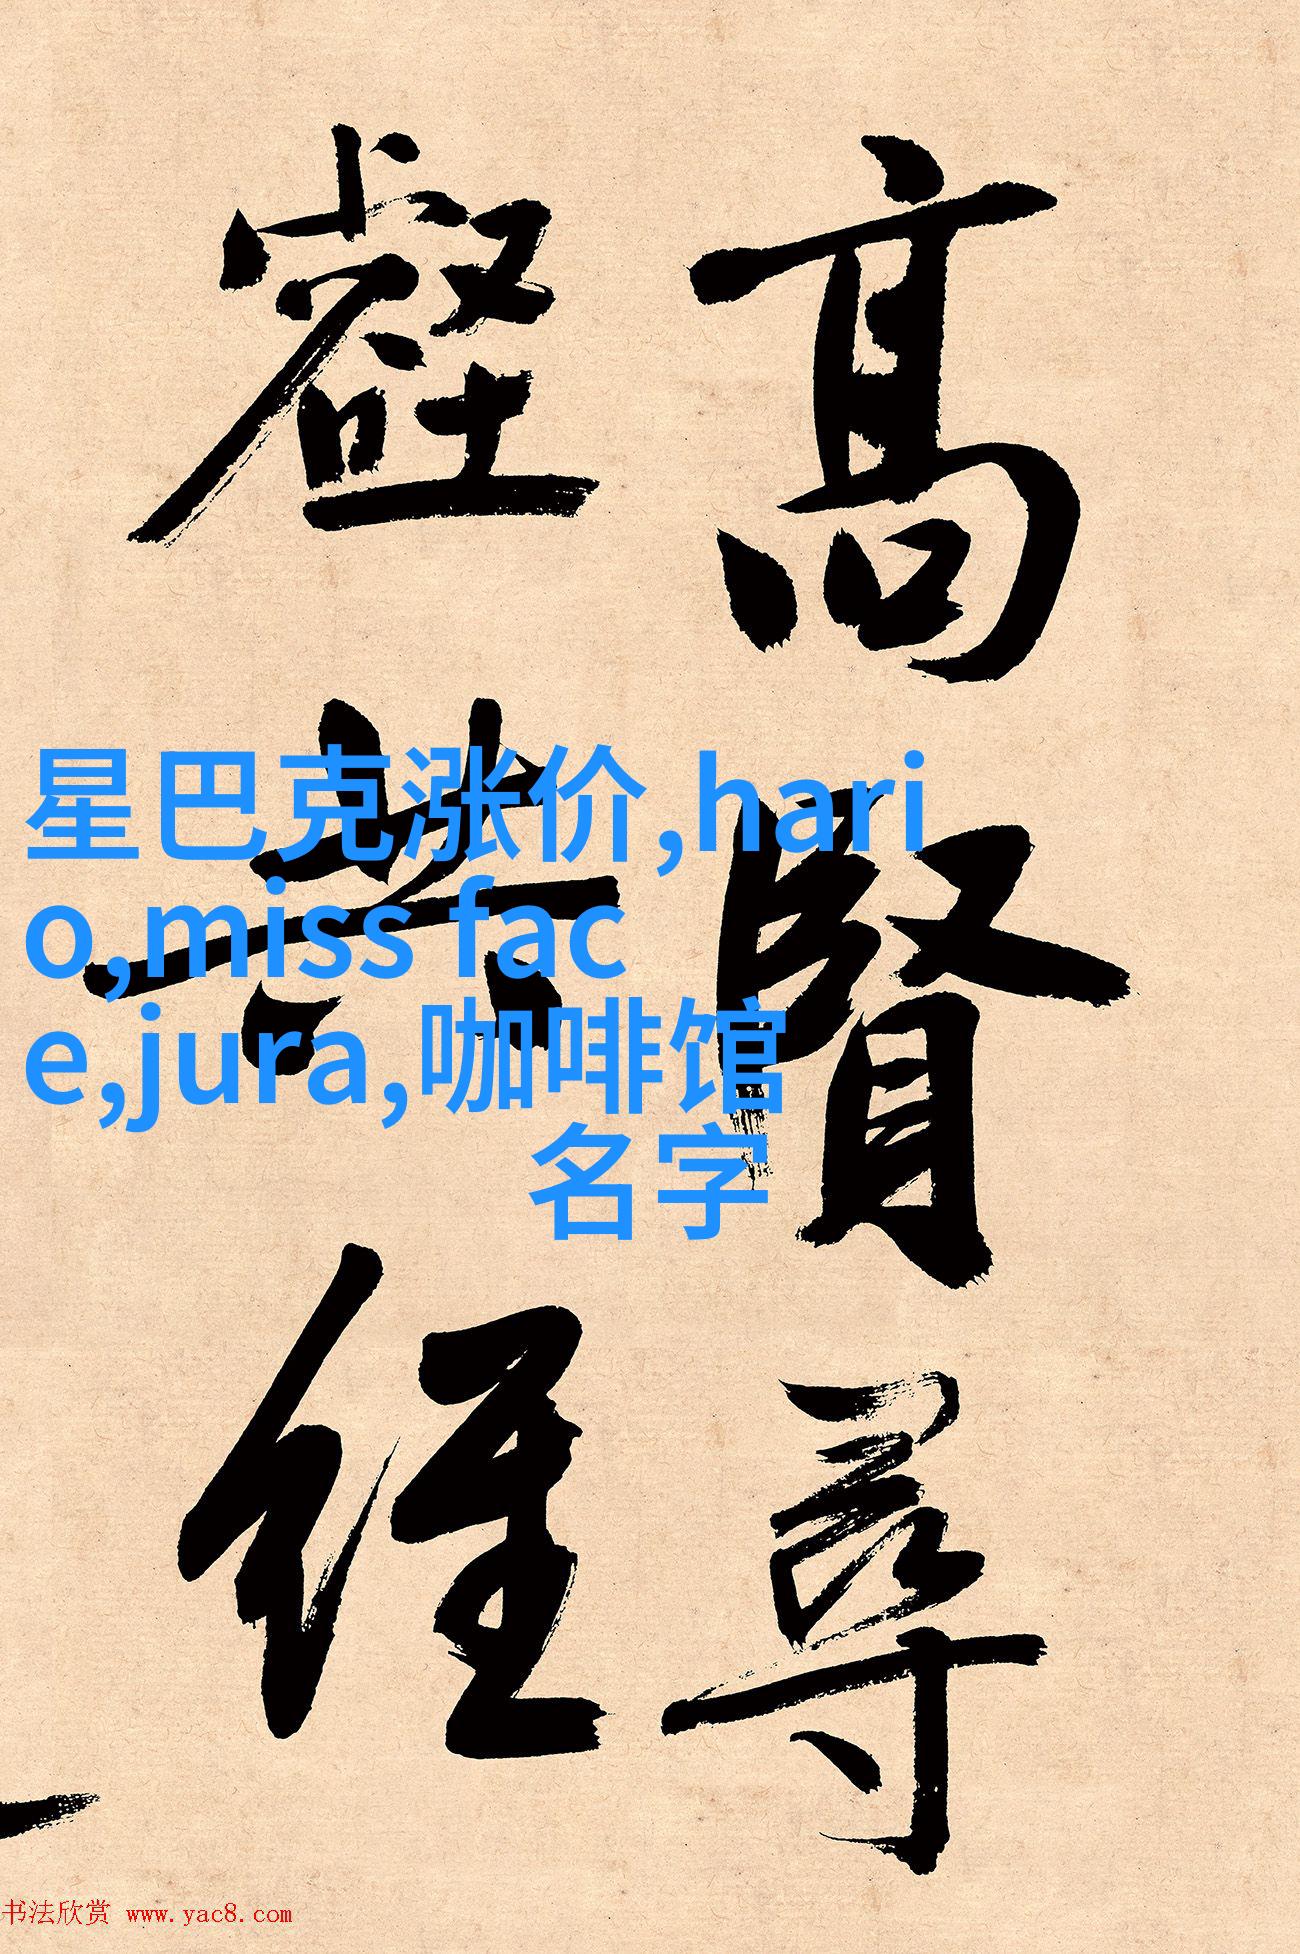 高賢尋
壑共經
星巴克涨价,hari
o,miss fac
e,jura,咖啡馆
名字
书法欣赏 www.yac8.com